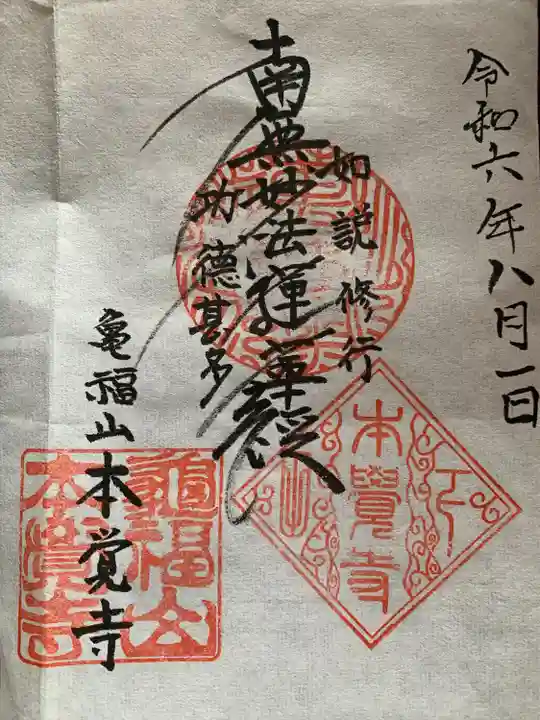 令和六年八月一日
如説修行
南無妙法蓮華経
功德甚多
亀福山本覚寺
本覺寺
龜福山
本覺寺